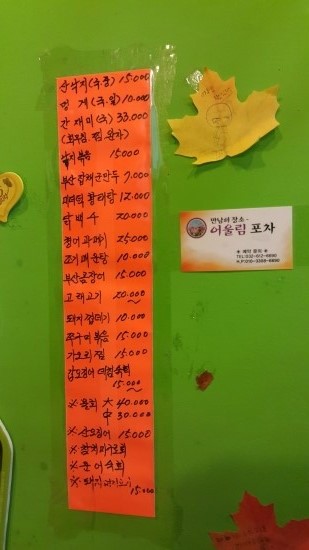 산낙지(국.중) 15.000
멍게(국.외) 10.000
간재미(국) 33.000
(회무침, 찜, 완자)
낙지볶음 15000
부산 잡채군만두 7.000
미더덕 황태탕 12.000
닭백수 20000
장어 25000
조기매운탕 10.000
부산곰장어 15.000
고래고기 20.000~
돼지껍데기 10.000
쭈구미볶음 15.000
가오리찜 15.000
갑오징어 데침숙회
15.000~
※ 물회 大 40.000
中 30.000
※ 산오징어 15000
※ 참치
※ 문어숙회
※ 돼지
15.000
만남의 장소~
어울림 포차
★ 예약 문의 ★
TEL:032-612-6690